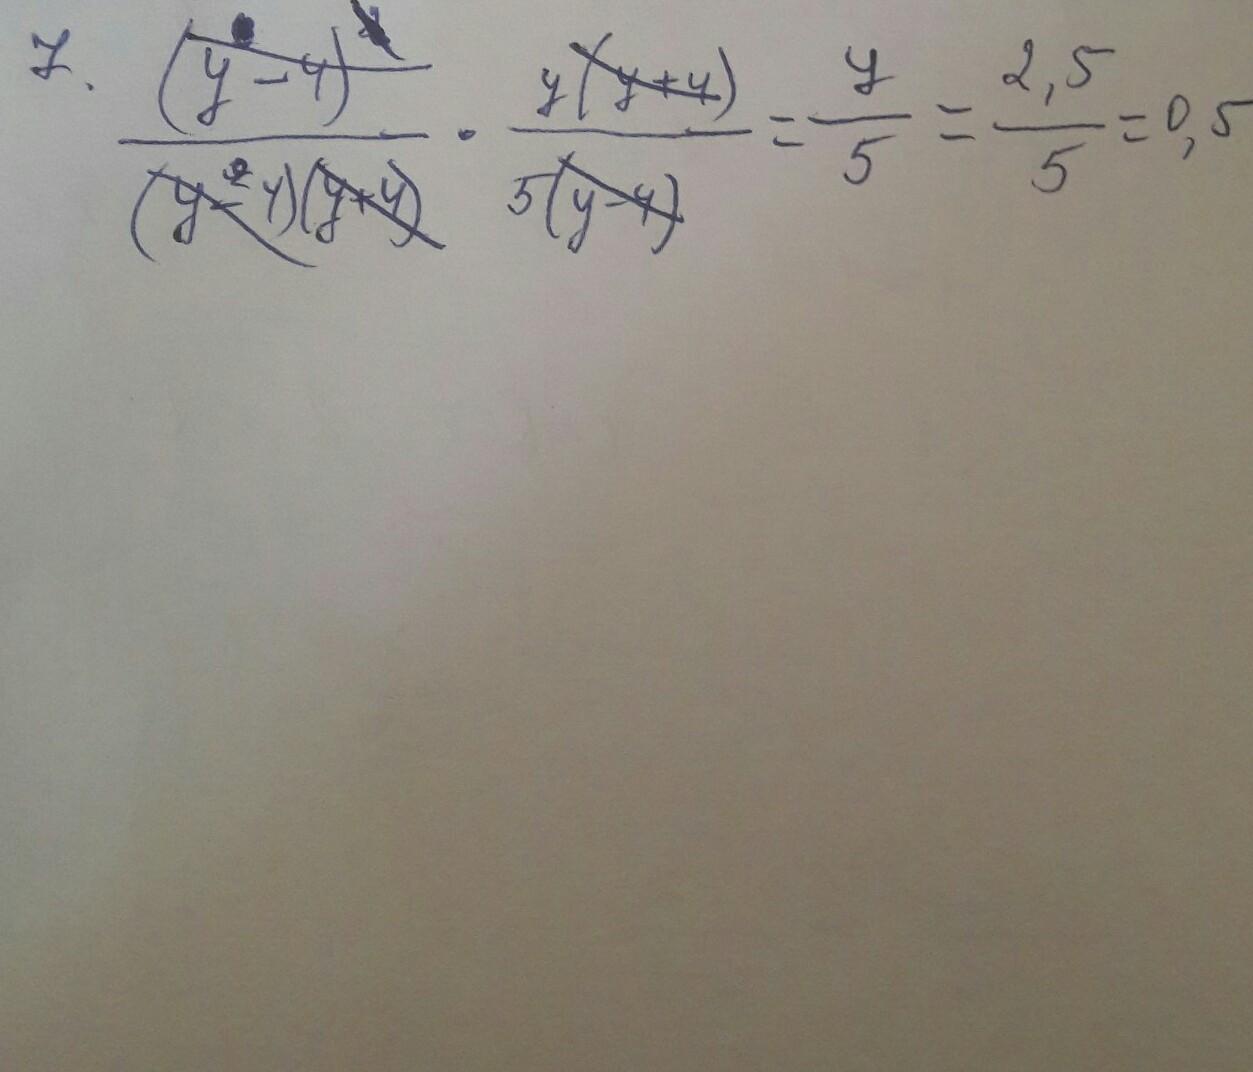 7. (y-4)² / (y-4)(y+4) · y(y+4) / 5(y-4) = y/5 = 2,5/5 = 0,5